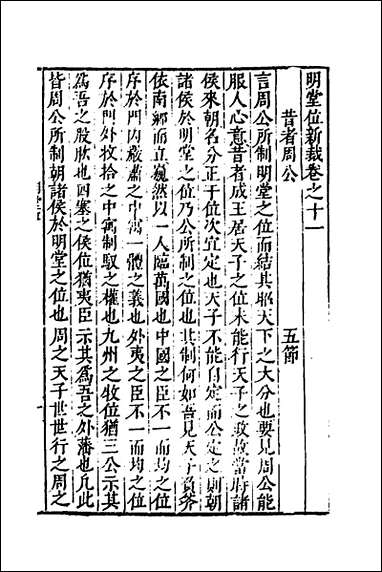 明堂位新裁卷之十一
昔者周公 五節
言周公所制明堂之位而結其昭天下之大分也要見周公能
服人心意昔者成王居天子之位未能行天子之政故當時諸
侯來朝名分正于位次宜定也天子不能自定而公定之則朝
諸侯於明堂之位乃公所制之位也其制何如吾見天子負斧
依南鄉而立巍然以一人臨萬國也中國之臣不一而均之位
序於門內嚴肅之中寓一體之義也外夷之臣不一而均之位
序於門外收拾之中寓制馭之權也九州之牧位猶三公示其
爲吾之股肱也四塞之侯位猶夷臣示其爲吾之外藩也凡此
皆周公所制朝諸侯於明堂之位也周之天子世世行之周之